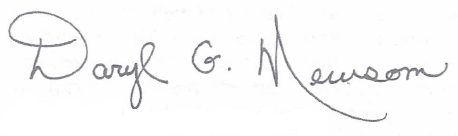 Daryl G. Newsom